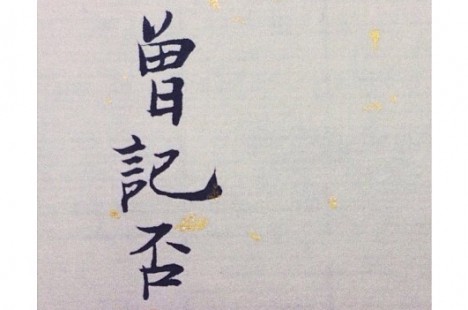 曾記否